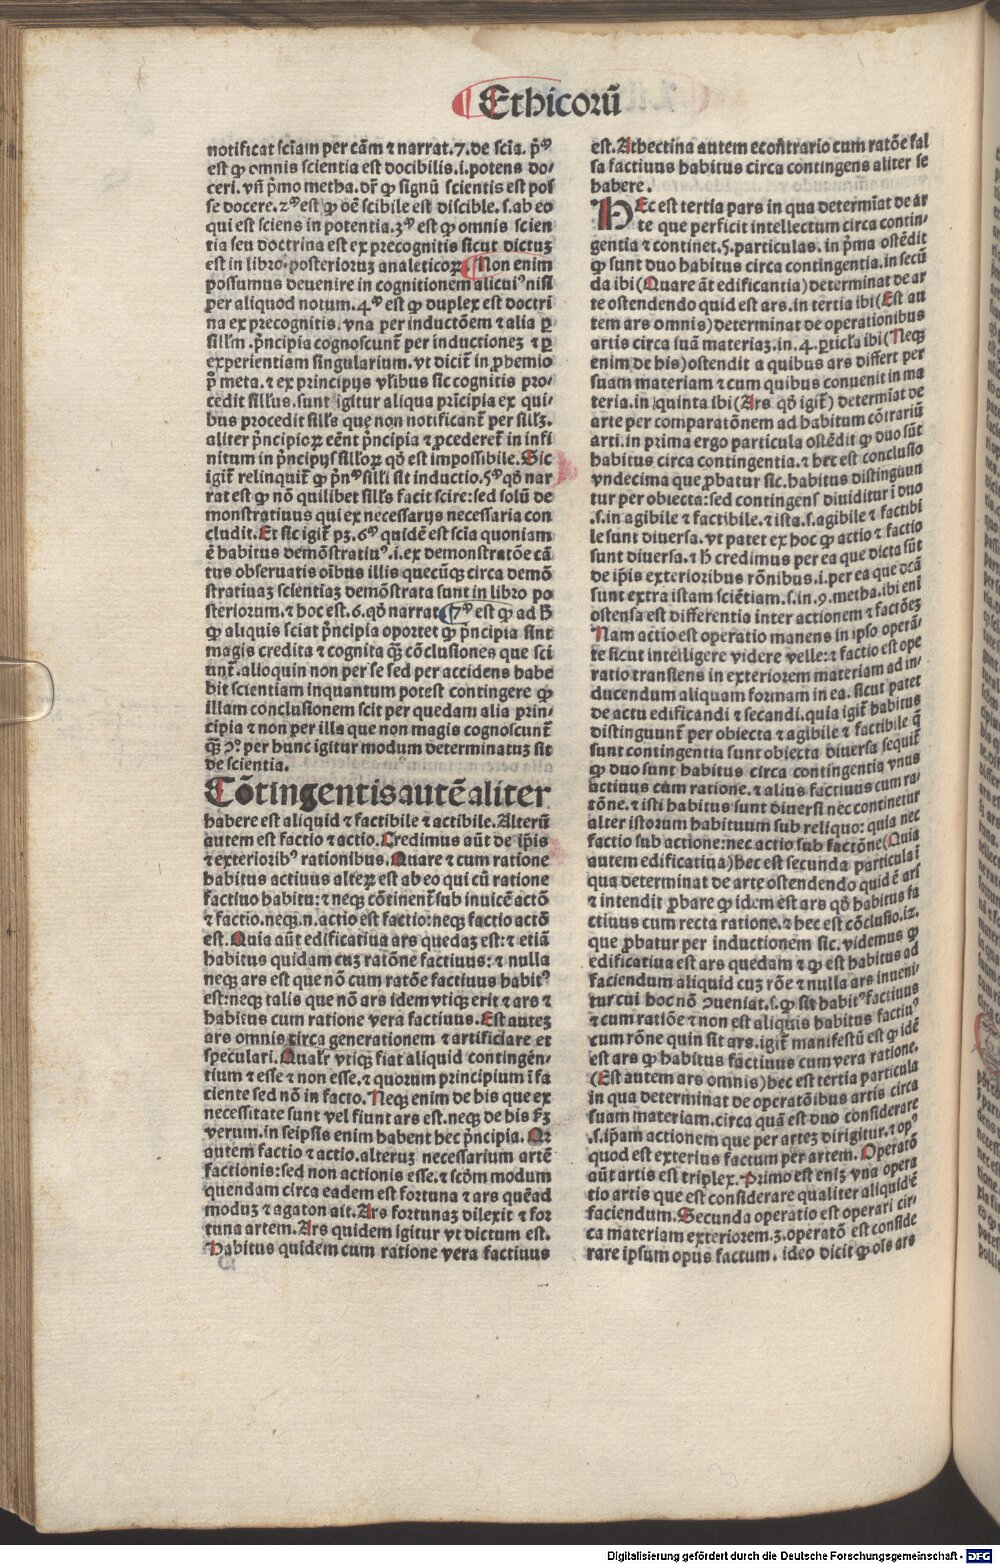 Ethicorū
notificat sciam per cām ⁊ narrat.7.de scia. pm̄ꝰ
est ꝙ omnis scientia est docibilis.i.potens do⸗
ceri. vn̄ pͥmo metha.dr̄ ꝙ signū scientis est pos
se docere.2ᵐ est ꝙ oē scibile est discible.s.ab eo
qui est sciens in potentia.3ᵐ est ꝙ omnis scien
tia seu doctrina est ex precognitis sicut dictuꝫ
est in libro posterioruꝫ analeticoꝝ Non enim
possumus deuenire in cognitionem alicuiꝰ nisi
per aliquod notum.4ᵐ est ꝙ duplex est doctri
na ex precognitis. vna per inductōem ⁊ alia ꝑ
sillm̄ .pͥncipia cognoscunt̄ per inductioneꝫ ⁊ ꝑ
experientiam singularium. vt dicit̄ in ꝓhemio
pͥ meta.⁊ ex principijs vl̄ibus sic cognitis pro⸗
cedit sill̄us.sunt igitur aliqua prīcipia ex qui⸗
bus procedit sill̄s que non notificant̄ per sillꝫ.
aliter pͥncipioꝝ eēnt pͥncipia ⁊ ꝓcederet̄ in infi
nitum in pͥncipijs sill̄oꝝ qd̄ est impossibile. Sic
igit̄ relinquit̄ ꝙ pͥnᵐ sill̄i sit inductio.5ᵐ qd̄ nar
rat est ꝙ nō quilibet sill̄s facit scire:sed solū de
monstratiuus qui ex necessarijs necessaria con
cludit. Et sic igit̄ pꝫ.6ᵐ quidē est scīa quoniam
ē habitus demōstratiuꝰ.i.ex demonstratōe cā
tus obseruatis oībus illis quecūqꝫ circa demō
stratiuaꝫ scientiaꝫ demōstrata sunt in libro po
steriorum.⁊ hoc est.6.qd̄ narrat.7ᵐ est ꝙ ad h̄
ꝙ aliquis sciat pͥncipia oportet ꝙ pͥncipia sint
magis credita ⁊ cognita qꝫ̄ cōclusiones que sci
unt̄.alloquin non per se sed per accidens habe
bit scientiam inquantum potest contingere ꝙ
illam conclusionem scit per quedam alia prin⸗
cipia ⁊ non per illa que non magis cognoscunt̄
qꝫ̄ ↄꝰ. per hunc igitur modum determinatuꝫ sit
de scientia.
Cōtingentis autē aliter
habere est aliquid ⁊ factibile ⁊ actibile. Alterū
autem est factio ⁊ actio. Credimus aūt de ip̄is
⁊ exterioribꝰ rationibus. Quare ⁊ cum ratione
habitus actiuus alteꝝ est ab eo qui cū ratione
factiuo habitu:⁊ neqꝫ cōtinent̄ sub inuicē actō
⁊ factio.neqꝫ.n.actio est factio:neqꝫ factio actō
est. Quia aūt edificatiua ars quedaꝫ est:⁊ etiā
habitus quidam cuꝫ ratōne factiuus:⁊ nulla
neqꝫ ars est que nō cum ratōe factiuus habitꝰ
est:neqꝫ talis que nō ars idem vtiqꝫ erit ⁊ ars ⁊
habitus cum ratione vera factiuus. Est auteꝫ
ars omnis circa generationem ⁊ artificiare et
speculari. Qualr̄ vtiqꝫ fiat aliquid contingen⸗
tium ⁊ esse ⁊ non esse.⁊ quorum principium ī fa
ciente sed nō in facto. Neqꝫ enim de his que ex
necessitate sunt vel fiunt ars est.neqꝫ de his ẜꝫ
verum.in seipsis enim habent hec pͥncipia. Qꝛ
autem factio ⁊ actio.alteruꝫ necessarium artē
factionis:sed non actionis esse.⁊ scd̄m modum
quendam circa eadem est fortuna ⁊ ars quēad
moduꝫ ⁊ agaton ait. Ars fortunaꝫ dilexit ⁊ for
tuna artem. Ars quidem igitur vt dictum est.
Habitus quidem cum ratione vera factiuus
est. Athectina autem econtrario cum ratōe fal
sa factiuus habitus circa contingens aliter se
habere.
HEc est tertia pars in qua determīat de ar
te que perficit intellectum circa contin⸗
gentia ⁊ continet.5.particulas. in pͥma ostēdit
ꝙ sunt duo habitus circa contingentia.in secū
da ibi (Quare āt edificantia) determinat de ar
te ostendendo quid est ars.in tertia ibi (Est au
tem ars omnis) determinat de operationibus
artis circa suā materiaꝫ.in.4.ꝑticl̄a ibi (Neqꝫ
enim de his) ostendit a quibus ars differt per
suam materiam ⁊ cum quibus conuenit in ma
teria.in quinta ibi (Ars qd̄ igit̄) determīat de
arte per comparatōnem ad habitum cōtrariū
arti.in prima ergo particula ostēdit ꝙ duo sūt
habitus circa contingentia.⁊ hec est conclusio
vndecima que ꝓbatur sic.habitus distinguun
tur per obiecta:sed contingens diuiditur ī duo
.s.in agibile ⁊ factibile.⁊ ista.s.agibile ⁊ factibi
le sunt diuersa. vt patet ex hoc ꝙ actio ⁊ factio
sunt diuersa.⁊ h̄ credimus per ea que dicta sūt
de ip̄is exterioribus rōnibus.i.per ea que dcā
sunt extra istam sciētiam.s.in.9.metha.ibi enī
ostensa est differentia inter actionem ⁊ factōeꝫ
Nam actio est operatio manens in ipso operā⸗
te sicut intelligere videre velle:⁊ factio est ope
ratio transiens in exteriorem materiam ad in⸗
ducendum aliquam formam in ea. sicut patet
de actu edificandi ⁊ secandi.quia igit̄ habitus
distinguunt̄ per obiecta ⁊ agibile ⁊ factibile q̄
sunt contingentia sunt obiecta diuersa sequit̄
ꝙ duo sunt habitus circa contingentia vnus
actiuus cum ratione.⁊ alius factiuus cum ra⸗
tōne.⁊ isti habitus sunt diuersi nec continetur
alter istorum habituum sub reliquo: quia nec
factio sub actione:nec actio sub factōne (Quia
autem edificatiua) hec est secunda particula ī
qua determinat de arte ostendendo quid ē ars
⁊ intendit ꝓbare ꝙ idem est ars qd̄ habitus fa
ctiuus cum recta ratione.⁊ hec est cōclusio.12.
que ꝓbatur per inductionem sic. videmus ꝙ
edificatiua est ars quedam ⁊ ꝙ est habitus ad
faciendum aliquid cuꝫ rōe ⁊ nulla ars inueni⸗
tur cui hoc nō ↄueniat.s.ꝙ sit habitꝰ factiuus
⁊ cum ratiōe ⁊ non est aliquis habitus factiuꝰ
cum rōne quin sit ars.igit̄ manifestū est ꝙ idē
est ars ꝙ habitus factiuus cum vera ratione.
(Est autem ars omnis) hec est tertia particula
in qua determinat de operatōibus artis circa
suam materiam.circa quā est duo considerare
.s.ip̄am actionem que per arteꝫ dirigitur.⁊ opꝰ
quod est exterius factum per artem. Operatō
aūt artis est triplex. Primo est enīꝫ vna opera
tio artis que est considerare qualiter aliquid ē
faciendum. Secunda operatio est operari cir⸗
ca materiam exteriorem.3.operatō est conside
rare ipsum opus factum. ideo dicit ꝙ oīs ars
Digitalisierung gefördert durch die Deutsche Forschungsgemeinschaft - DFG